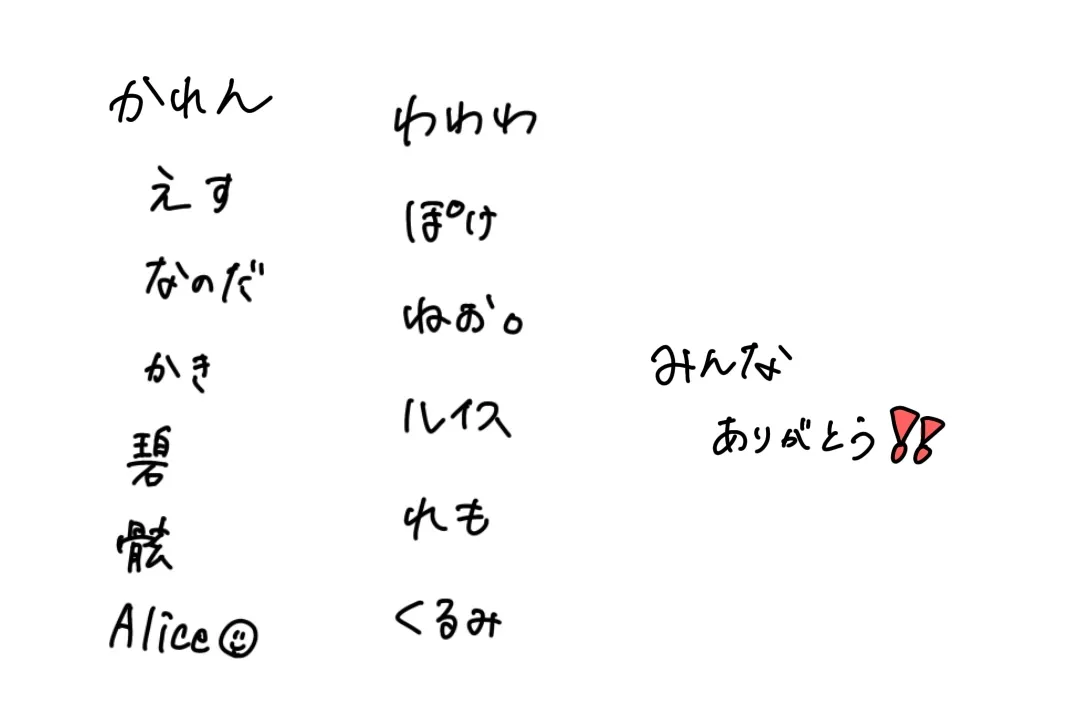 かれん
えす
なのだ
かき
碧
骸
Alice
わわわ
ぽけ
ねお。
ルイス
れも
くるみ
みんな
ありがとう!!